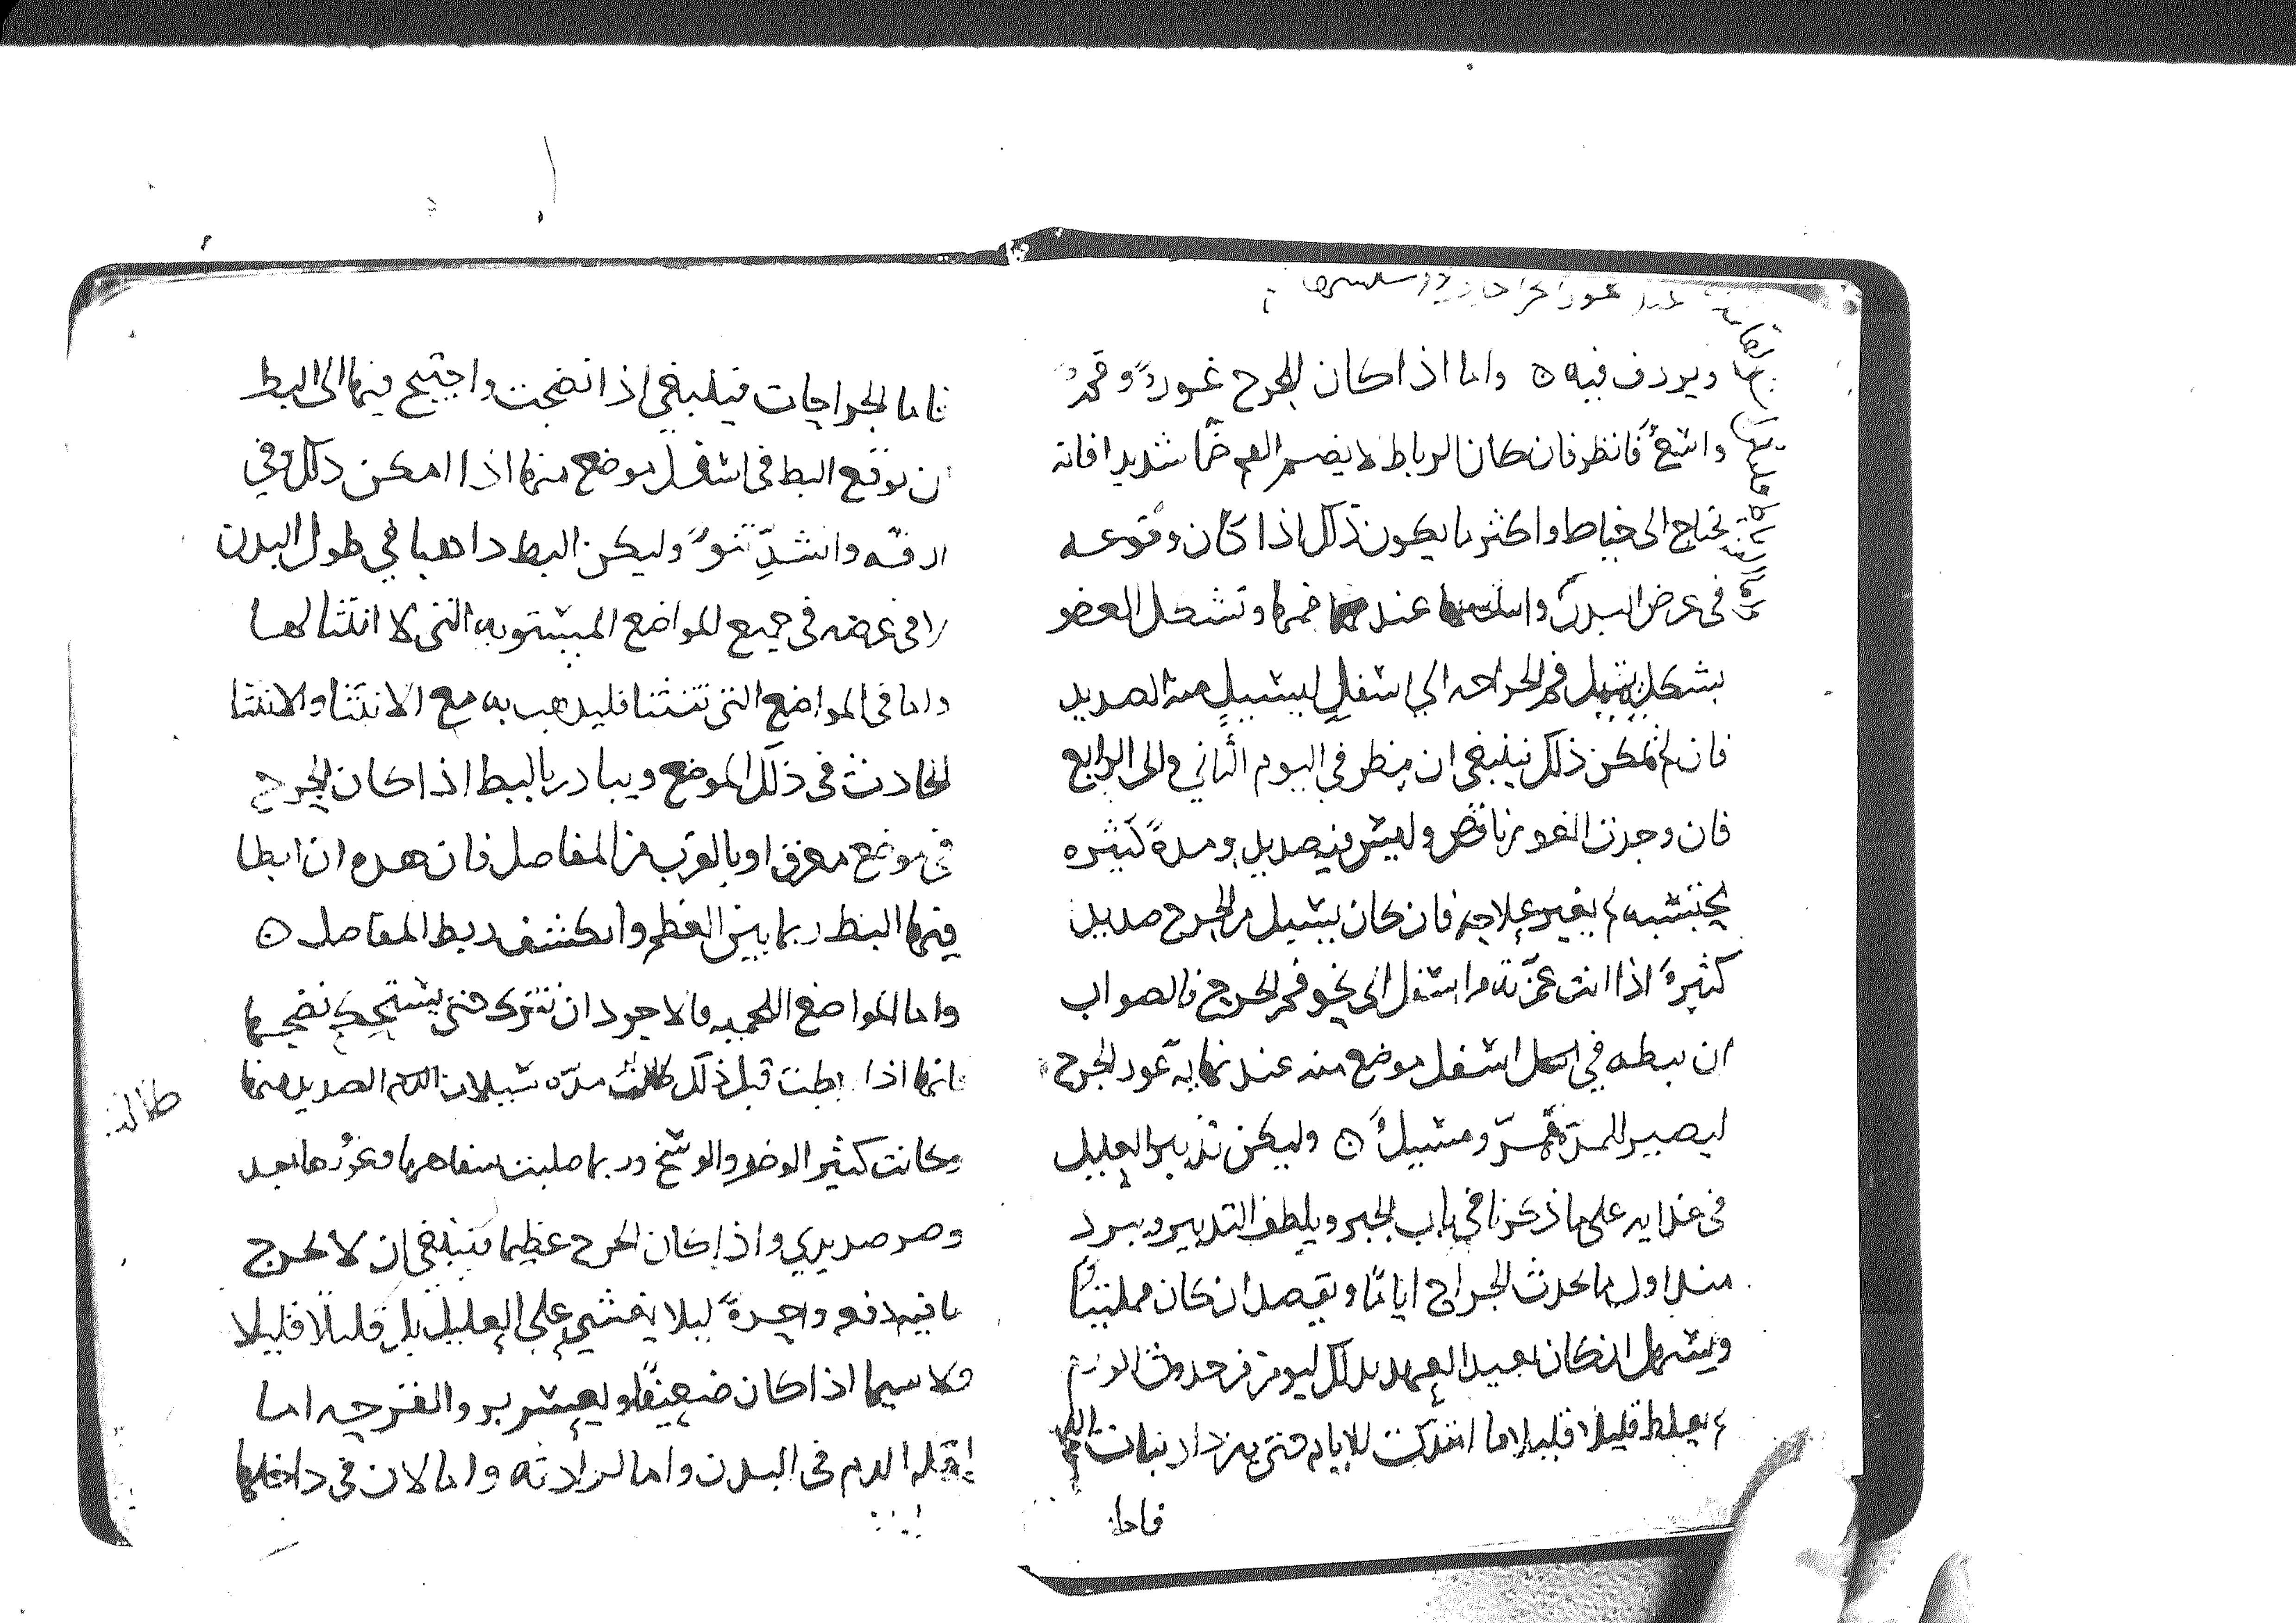 ويردف فيه ه واما اذا كان للجرح غور وقمر
واسع فانظر فان كان الرباط لا يضم الفم ضما شديدا فانه
يحتاج الى خياط واكثر ما يكون ذلك اذا كان وقوعه
فى عرض البدن عند ضمها وتشكل العضو
بشكل يميل فم الجراحه الي اسفل ليسيل منه الصديد
فان لم يمكن ذلك فينبغي ان ينظر في اليوم الثاني والى الرابع
فان وجدت الغور ناقص وليس فيه صديد ومدة كثيره
يحتبسه لم يغير علاجه فان كان يسيل من الجرح صديد
كثير اذا انت غمزته من اسفل الى نحو فم الجرح فالصواب
ان يبطه في اسفل موضع منه عند نهايه غور الجرح
ليصير للمدة ممر ومسيل ه وليكن تدبير العليل
فى غذايه على ما ذكرنا في باب الجبر ويلطف التدبير ويبرد
منذ اول ما يحدث الجراح اياما ويفصد ان كان ممتليا
ويسهل ان كان بعيد العهد بذلك ليومن من حدوث الورم
ثم يغلظ قليلا قليلا ما امتدت الايام حتى يزداد نبات اللحم
فاما
فاما الجراحات فينبغي اذا نضجت واحتيج فيها الى البط
ان يوقع البط في اسفل موضع منها اذا امكن ذلك وفي
ارقه واشد نتو وليكن البط ذاهبا في طول البدن
لا فى عرضه فى جميع المواضع المستويه التى لا انثنا لها
واما فى المواضع التى تنثنا فليذهب به مع الانثنا والانثنا
الحادث فى ذلك الموضع ويبادر بالبط اذا كان الجرح
فى موضع معرق او بالقرب من المفاصل فان هذه ان ابطا
فيها البط ربما يبس العظم وانكشف ربط المفاصل ه
واما المواضع اللحميه فالاجود ان تترك حتى يستحكم نضجها
فانها اذا بطت قبل ذلك طالت مدة سيلان الصديد منها
وكانت كثير الوضر والوسخ وربما صلبت شفاهها وغورها بعد
واذا كان الجرح عظيما فينبغي ان لا يخرج
ما فيه دفعه واحدة ليلا يغشي على العليل بل قليلا قليلا
ولا سيما اذا كان ضعيفا ويعسر برو القرحه اما
لقله الدم فى البدن واما لرداته واما لان في داخلها